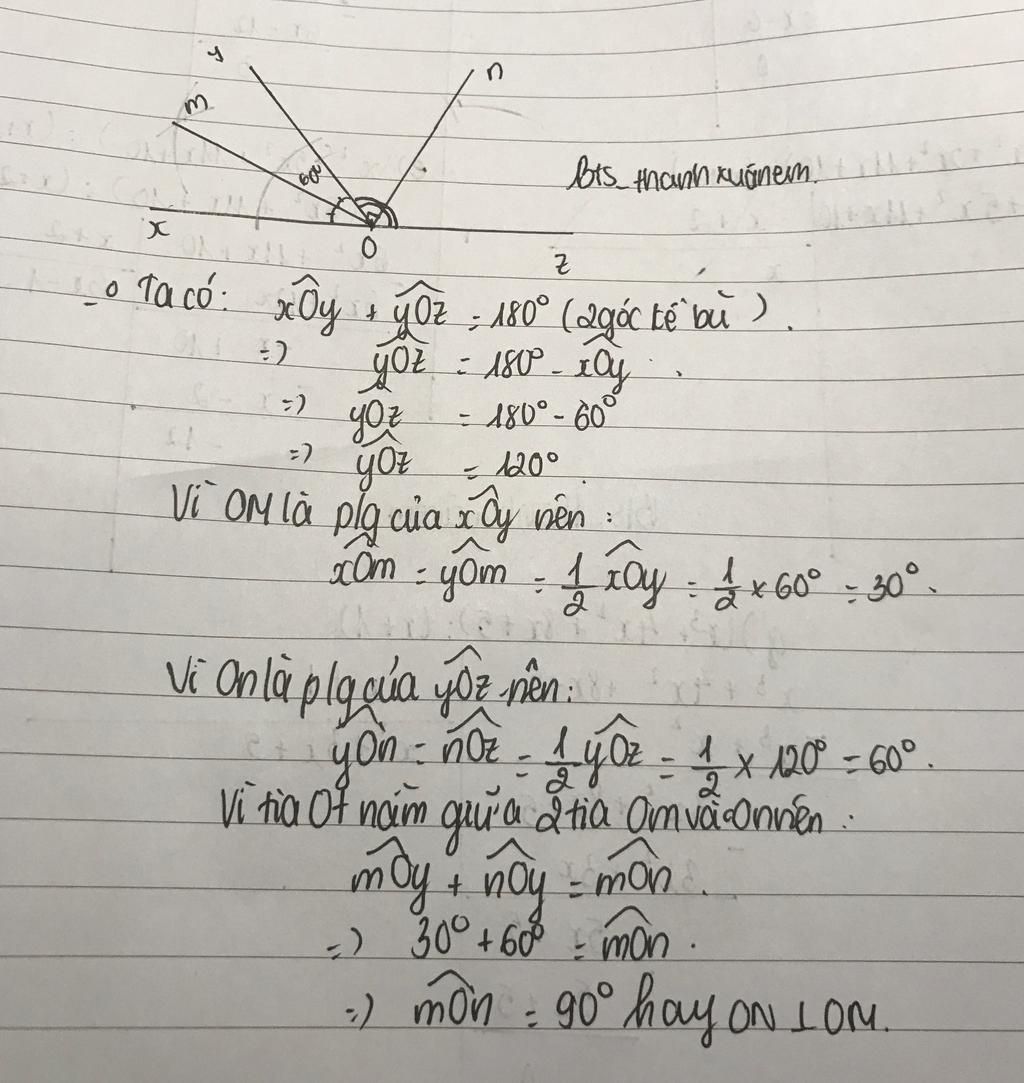 y
n
m
60°
Bts_thanhxuânem.
x
O
z
Ta có: xOy + yOz = 180° (2 góc kề bù).
=> yOz = 180° - xOy.
=> yOz = 180° - 60°
=> yOz = 120°
Vì OM là plg của xOy nên:
xOm = yOm = 1/2 xOy = 1/2 × 60° = 30°.
Vì On là plg của yOz nên:
yOn = nOz = 1/2 yOz = 1/2 × 120° = 60°.
Vì tia Oy nằm giữa 2 tia Om và On nên:
mOy + nOy = mOn.
=> 30° + 60° = mOn.
=> mOn = 90° hay ON ⊥ OM.